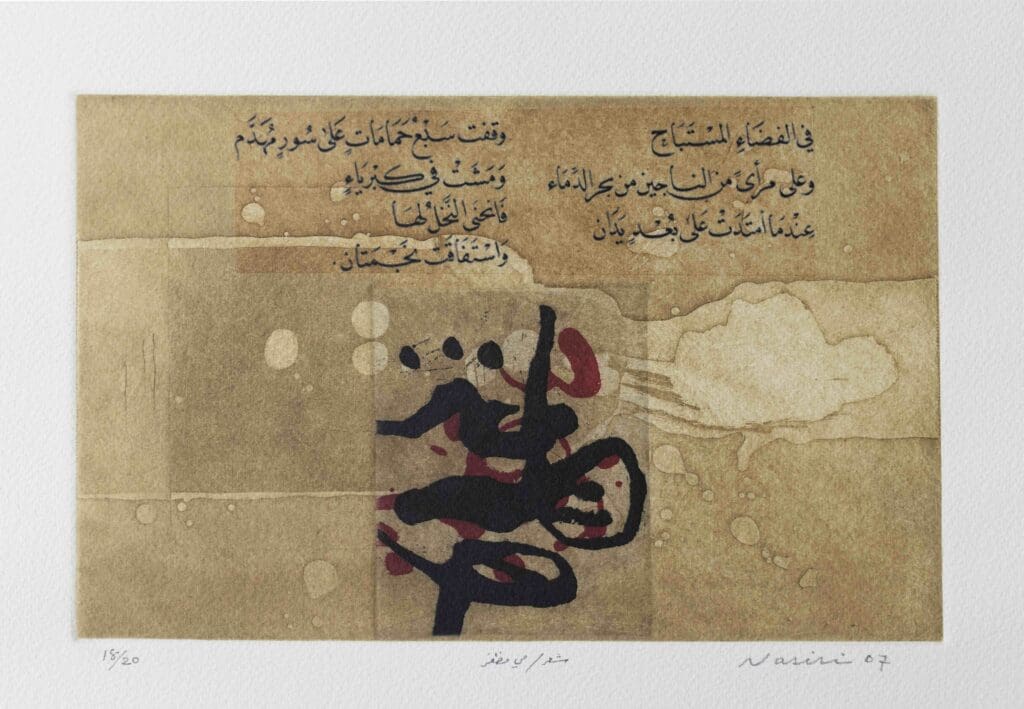 في الفضَاءِ المسْتَبَاحِ
وعلى مرأىً من الناجين من بحر الدّمَاء
عِندمَا امتَدّتْ عَلى بُعْدٍ يَدَان
وقفت سَبْعُ حَمَامَاتٍ عَلى سُورٍ مُهَدَّم
وَمَشَتْ في كبْرِيَاءٍ
فَانحَنى النَّخلُ لهَا
وَاسْتَفَاقَتْ نَجْمَتَان.
18/20
شعر / مي مظفر
Nasiri 07